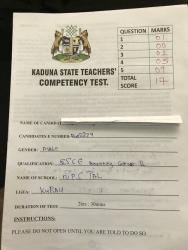 QUESTION MARKS
1 01
2 00
3 02
4 05
5 09
TOTAL SCORE 17
KADUNA STATE TEACHERS'
COMPETENCY TEST.
NAME OF CANDIDATE
CANDIDATES NUMBER
GENDER: MALE
QUALIFICATION: SSCE
NAME OF SCHOOL:
LGEA:
DURATION OF TEST 2hrs 30mins
INSTRUCTIONS:
PLEASE DO NOT OPEN UNTIL YOU ARE TOLD TO DO SO